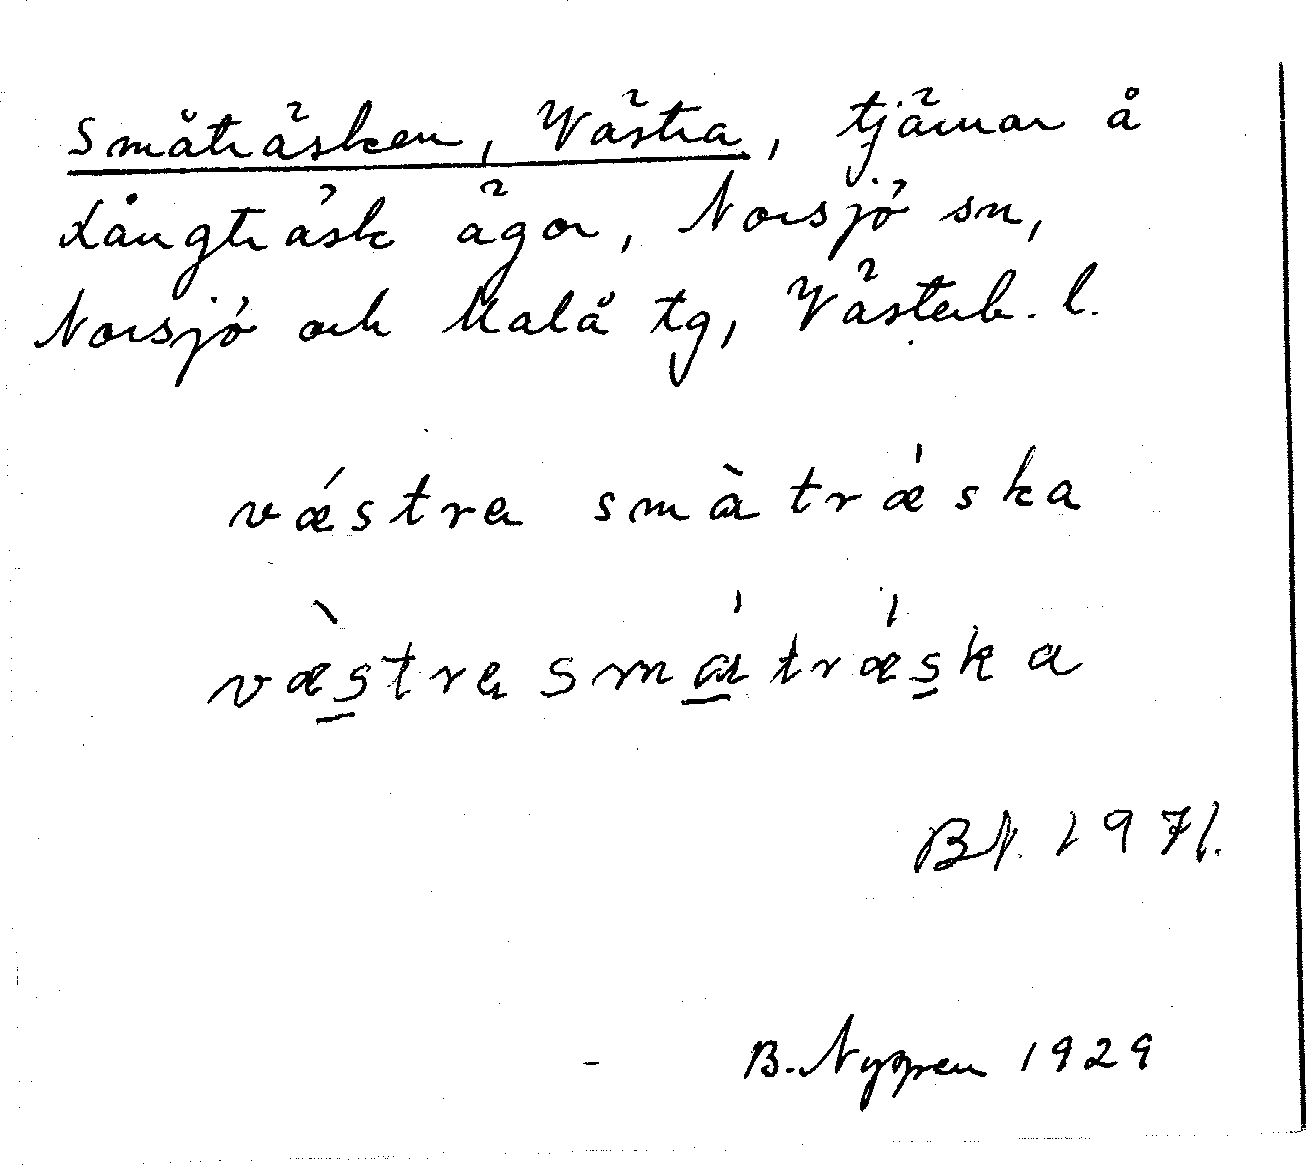 Småträsken, Västra, tjärnar å
Långträsk ägor, Norsjö sn,
Norsjö och Malå tg, Västerb. l.
vǽstra smàtrǽska
væ̀stra småtrǽska
BN. 1971.
B. Nyppen 1929